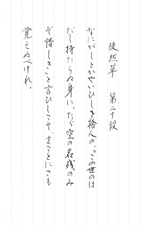 徒然草　第二十段
なにがしとかやいひし世捨人の、この世のほ
だし持たらぬ身に、ただ空の名残のみ
ぞ惜しきと言ひしこそ、まことにさも
覚えぬべけれ。